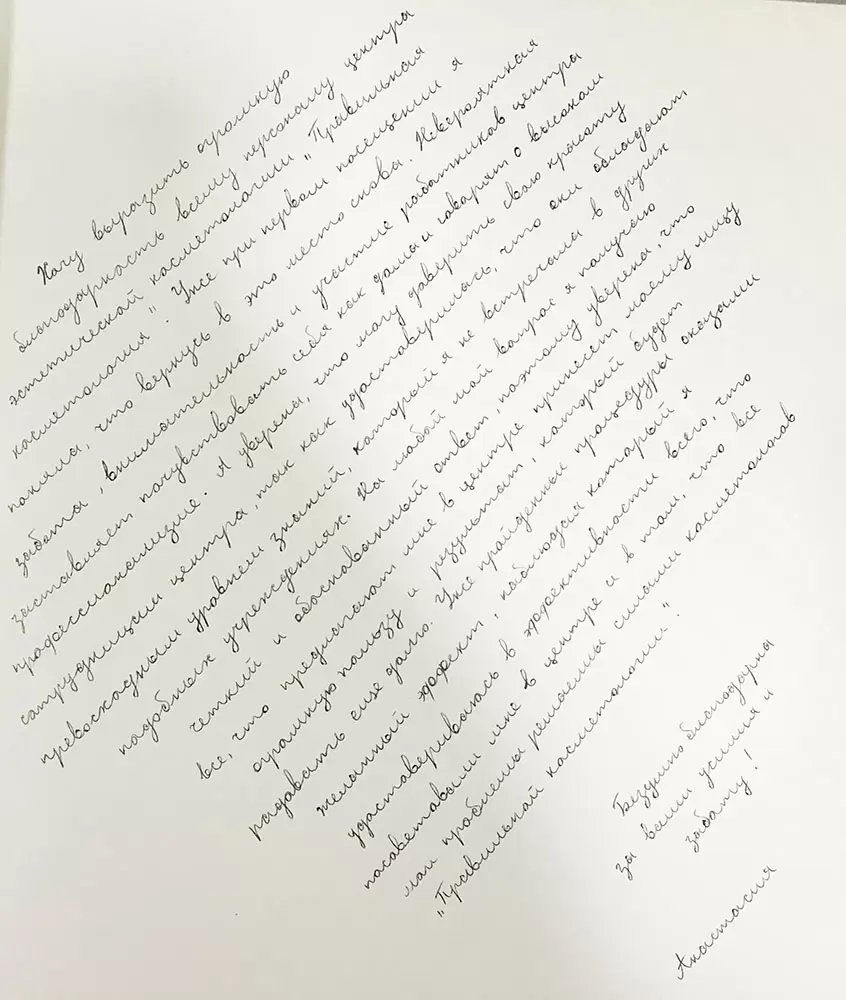 Хочу выразить огромную
благодарность всему персоналу центра
эстетической косметологии "Правильная
косметология". Уже при первом посещении я
поняла, что вернусь в это место снова. Невероятная
забота, внимательность и участие работников центра
заставляет почувствовать себя как дома и говорят о высоком
профессионализме. Я уверена, что могу доверить свою красоту
сотрудницам центра, так как удостоверилась, что они обладают
превосходным уровнем знаний, который я не встречала в других
подобных учреждениях. На любой мой вопрос я получаю
четкий и обоснованный ответ, поэтому уверена, что
все, что предлогают мне в центре принесет моему лицу
огромную пользу и результат, который будет
радовать еще долго. Уже пройденные процедуры оказали
желанный эффект, наблюдая который я
удостоверилась в эффективности всего, что
посоветовали мне в центре и в том, что все
мои проблемы решаемы силами косметологов
"Правильной косметологии".
Безумно благодарна
за ваши усилия и
заботу!
Анастасия